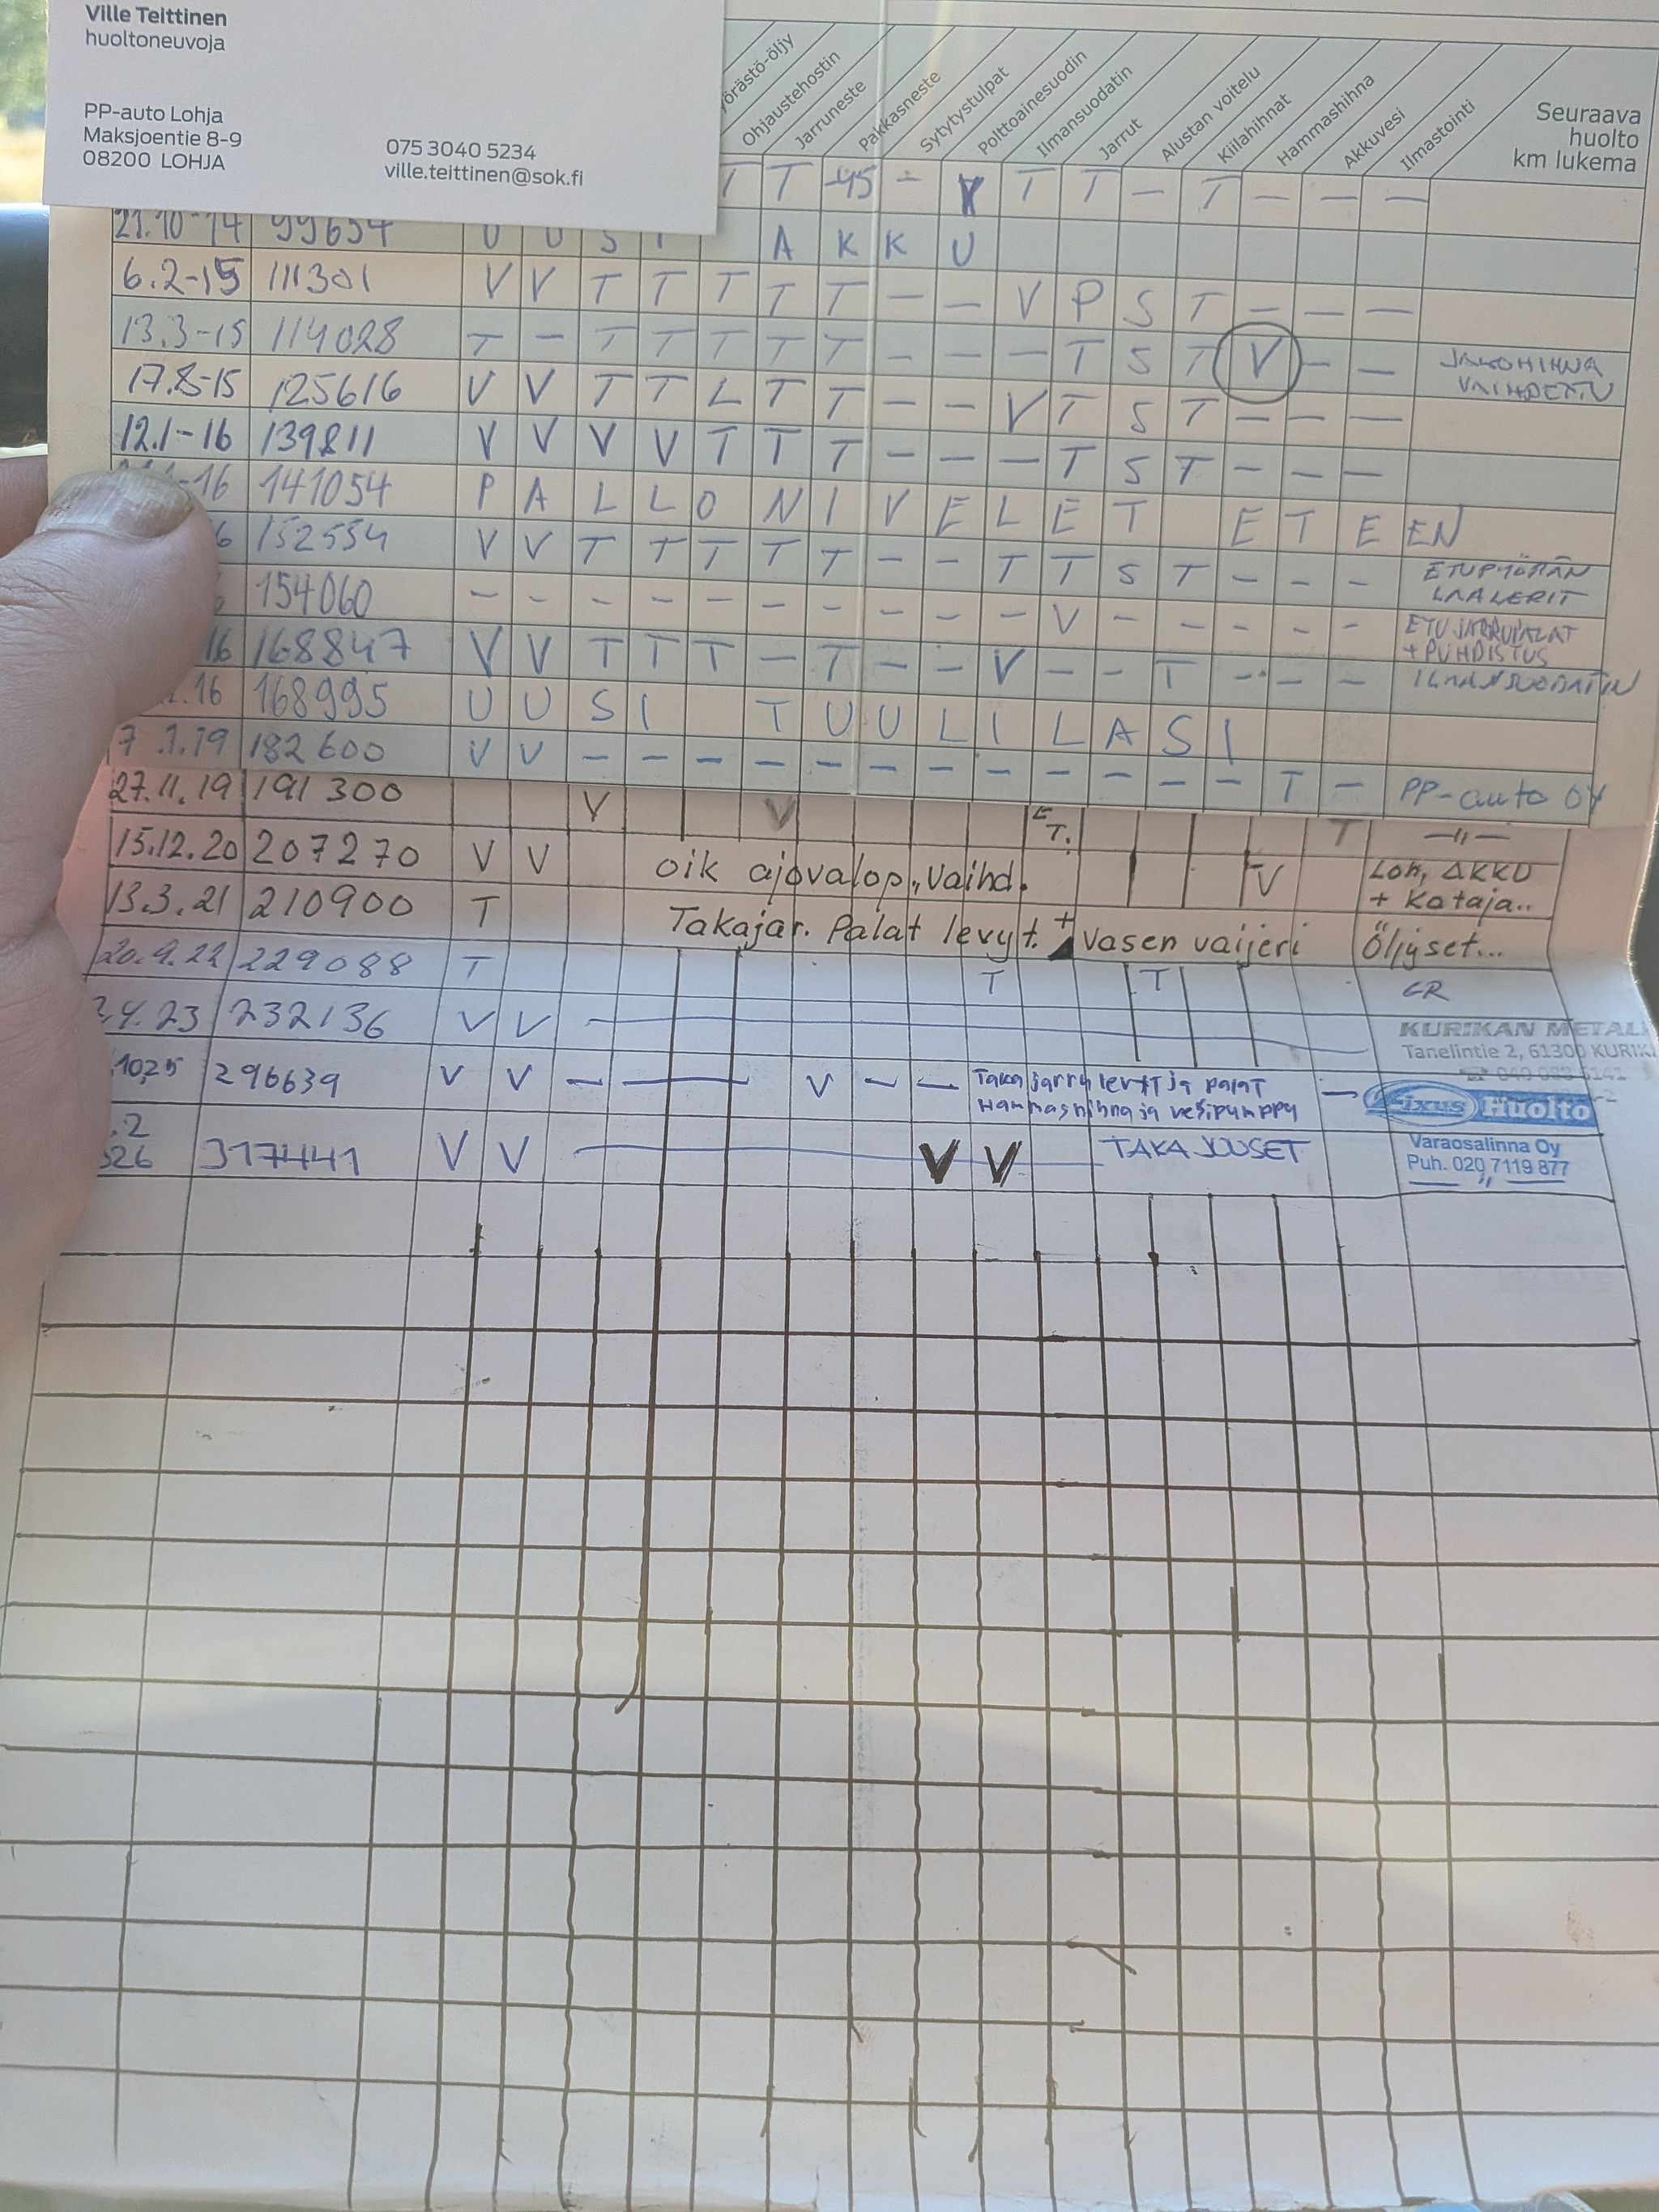 Ville Teittinen
huoltoneuvoja
PP-auto Lohja
Maksjoentie 8-9
08200 LOHJA
075 3040 5234
ville.teittinen@sok.fi
Ohjaustehostin
Jarruneste
Pakkasneste
Sytytystulpat
Polttoainesuodin
Ilmansuodatin
Jarrut
Alustan voitelu
Kiilahihnat
Hammashihna
Akkuvesi
Ilmastointi
Seuraava
huolto
km lukema
T T -45 - V T T - T - - -
21.10-14 99654 U U S I A K K U
6.2-15 111301 V V T T T T T - - V P S T - - -
13.3-15 114028 T - T T T T T - - - T S T V - - JAKOHIHNA
VAIHDETTU
17.8-15 125616 V V T T L T T - - V T S T - - -
12.1-16 139811 V V V V T T T - - - T S T - - -
-16 141054 P A L L O N I V E L E T E T E EN
6 152554 V V T T T T T - - T T S T - - - ETUPYÖRÄN
LAALERIT
154060 - - - - - - - - - - V - - - - - ETUJARRUPALAT
+ PUHDISTUS
16 168847 V V T T T - T - - V - - T - - - ILMANSUODATIN
.16 168995 U U S I T U U L I L A S I
7.1.19 182600 V V - - - - - - - - - - - - T - PP-auto OY
27.11.19 191 300 V V E
T. T -"-
15.12.20 207270 V V oik ajovalop. Vaihd. V Loh, AKKU
+ Kataja..
13.3.21 210900 T Takajar. Palat levyt. + Vasen vaijeri Öljyset...
20.9.22 229088 T T T
.4.23 232136 V V
KURIKAN METAL
Tanelintie 2, 61300 KURIK
.10.25 296639 V V - - V - - Taka jarru levyt ja palat
Hammashihna ja vesipumppu -
Fixus Huolto
.2
26 317441 V V V V TAKA JOUSET
Varaosalinna Oy
Puh. 020 7119 877
"